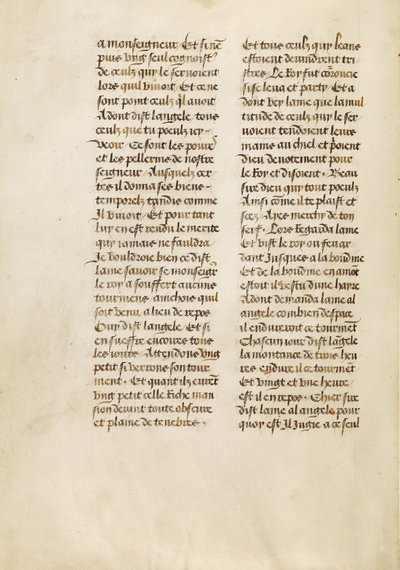 a monseigneur Et si ne
puis vng seul cognoistre
de ceulx quy le seruoient
lors quil viuoit Et ce ne
sont point ceulx ql auoit
Adont dist langele tous
ceulx que tu peulz icy
veoir Ce sont les poures
et les pellerins de nostre
seigneur Ausquelz cer
tes il donna ses biens
temporelz tandis comme
Il viuoit Et pour tant
luy en est rendu le merite
quy iamais ne fauldra
Je vouldroie bien ce dist
lame sauoir se monseigr
le roy a souffert aucuns
tourmens ainchois quil
soit venu a lieu de repos
Ouy dist langele Et si
en sueffre encores tous
les iours Attendons vng
petit si verrons son tour
ment Et quant ilz eurent
vng petit celle riche man
sion deuint toute obscure
et plaine de tenebres
Et tous ceulx quy leans
estoient deuindrent tri
stres Le Roy fut couroucie
si se leua et party Et a
dont vey lame que la mul
titude de ceulx quy le ser
uoient tendoient leurs
mains au chiel et prioient
dieu deuotement pour
le Roy et disoient Beau
sire dieu quy tout peulz
Ainsi come il te plaist et
scez Ayes merchy de ton
serf Lors Regarda lame
Et vist le roy ou feu ar
dant Jusques a la boudine
Et de la boudine en amont
estoit il vestu dune hayre
Adont demanda lame al
angele combien despace
il enduroit ce tourmet
Chascun iour dist langele
la montance de trois heu
res endure il ce tourmet
Et vingt et vne heure
est il en repos Chier sire
dist lame al angele pour
quoy est Il iugie a ce seul